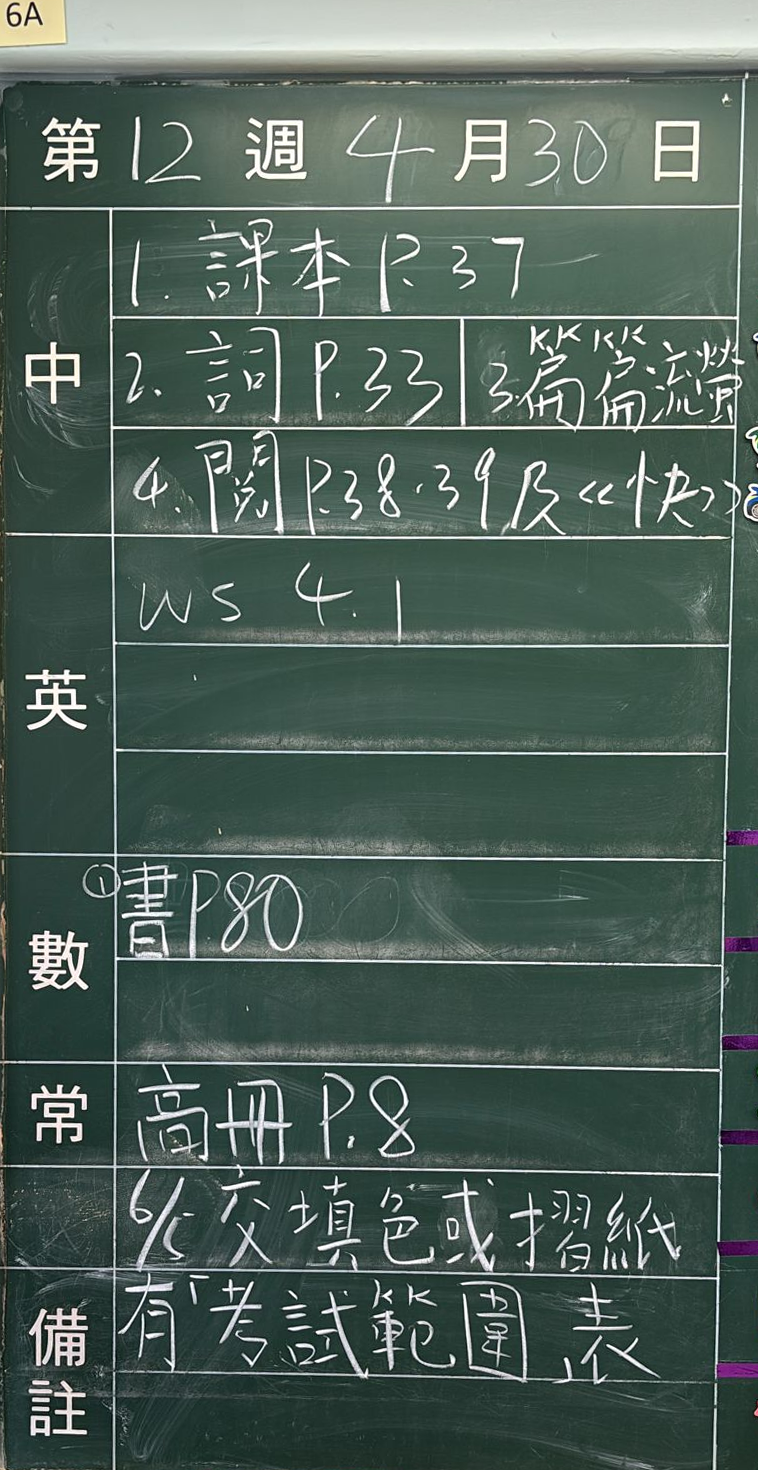 6A
第12週4月30日
中
1. 課本 P.37
2. 詞 P.33
3. 篇篇流螢
4. 閱 P.38.39及《快》
英
WS 4.1
數
①書P80
常
高冊 P.8
6/5交填色或摺紙
備註
有「考試範圍」表